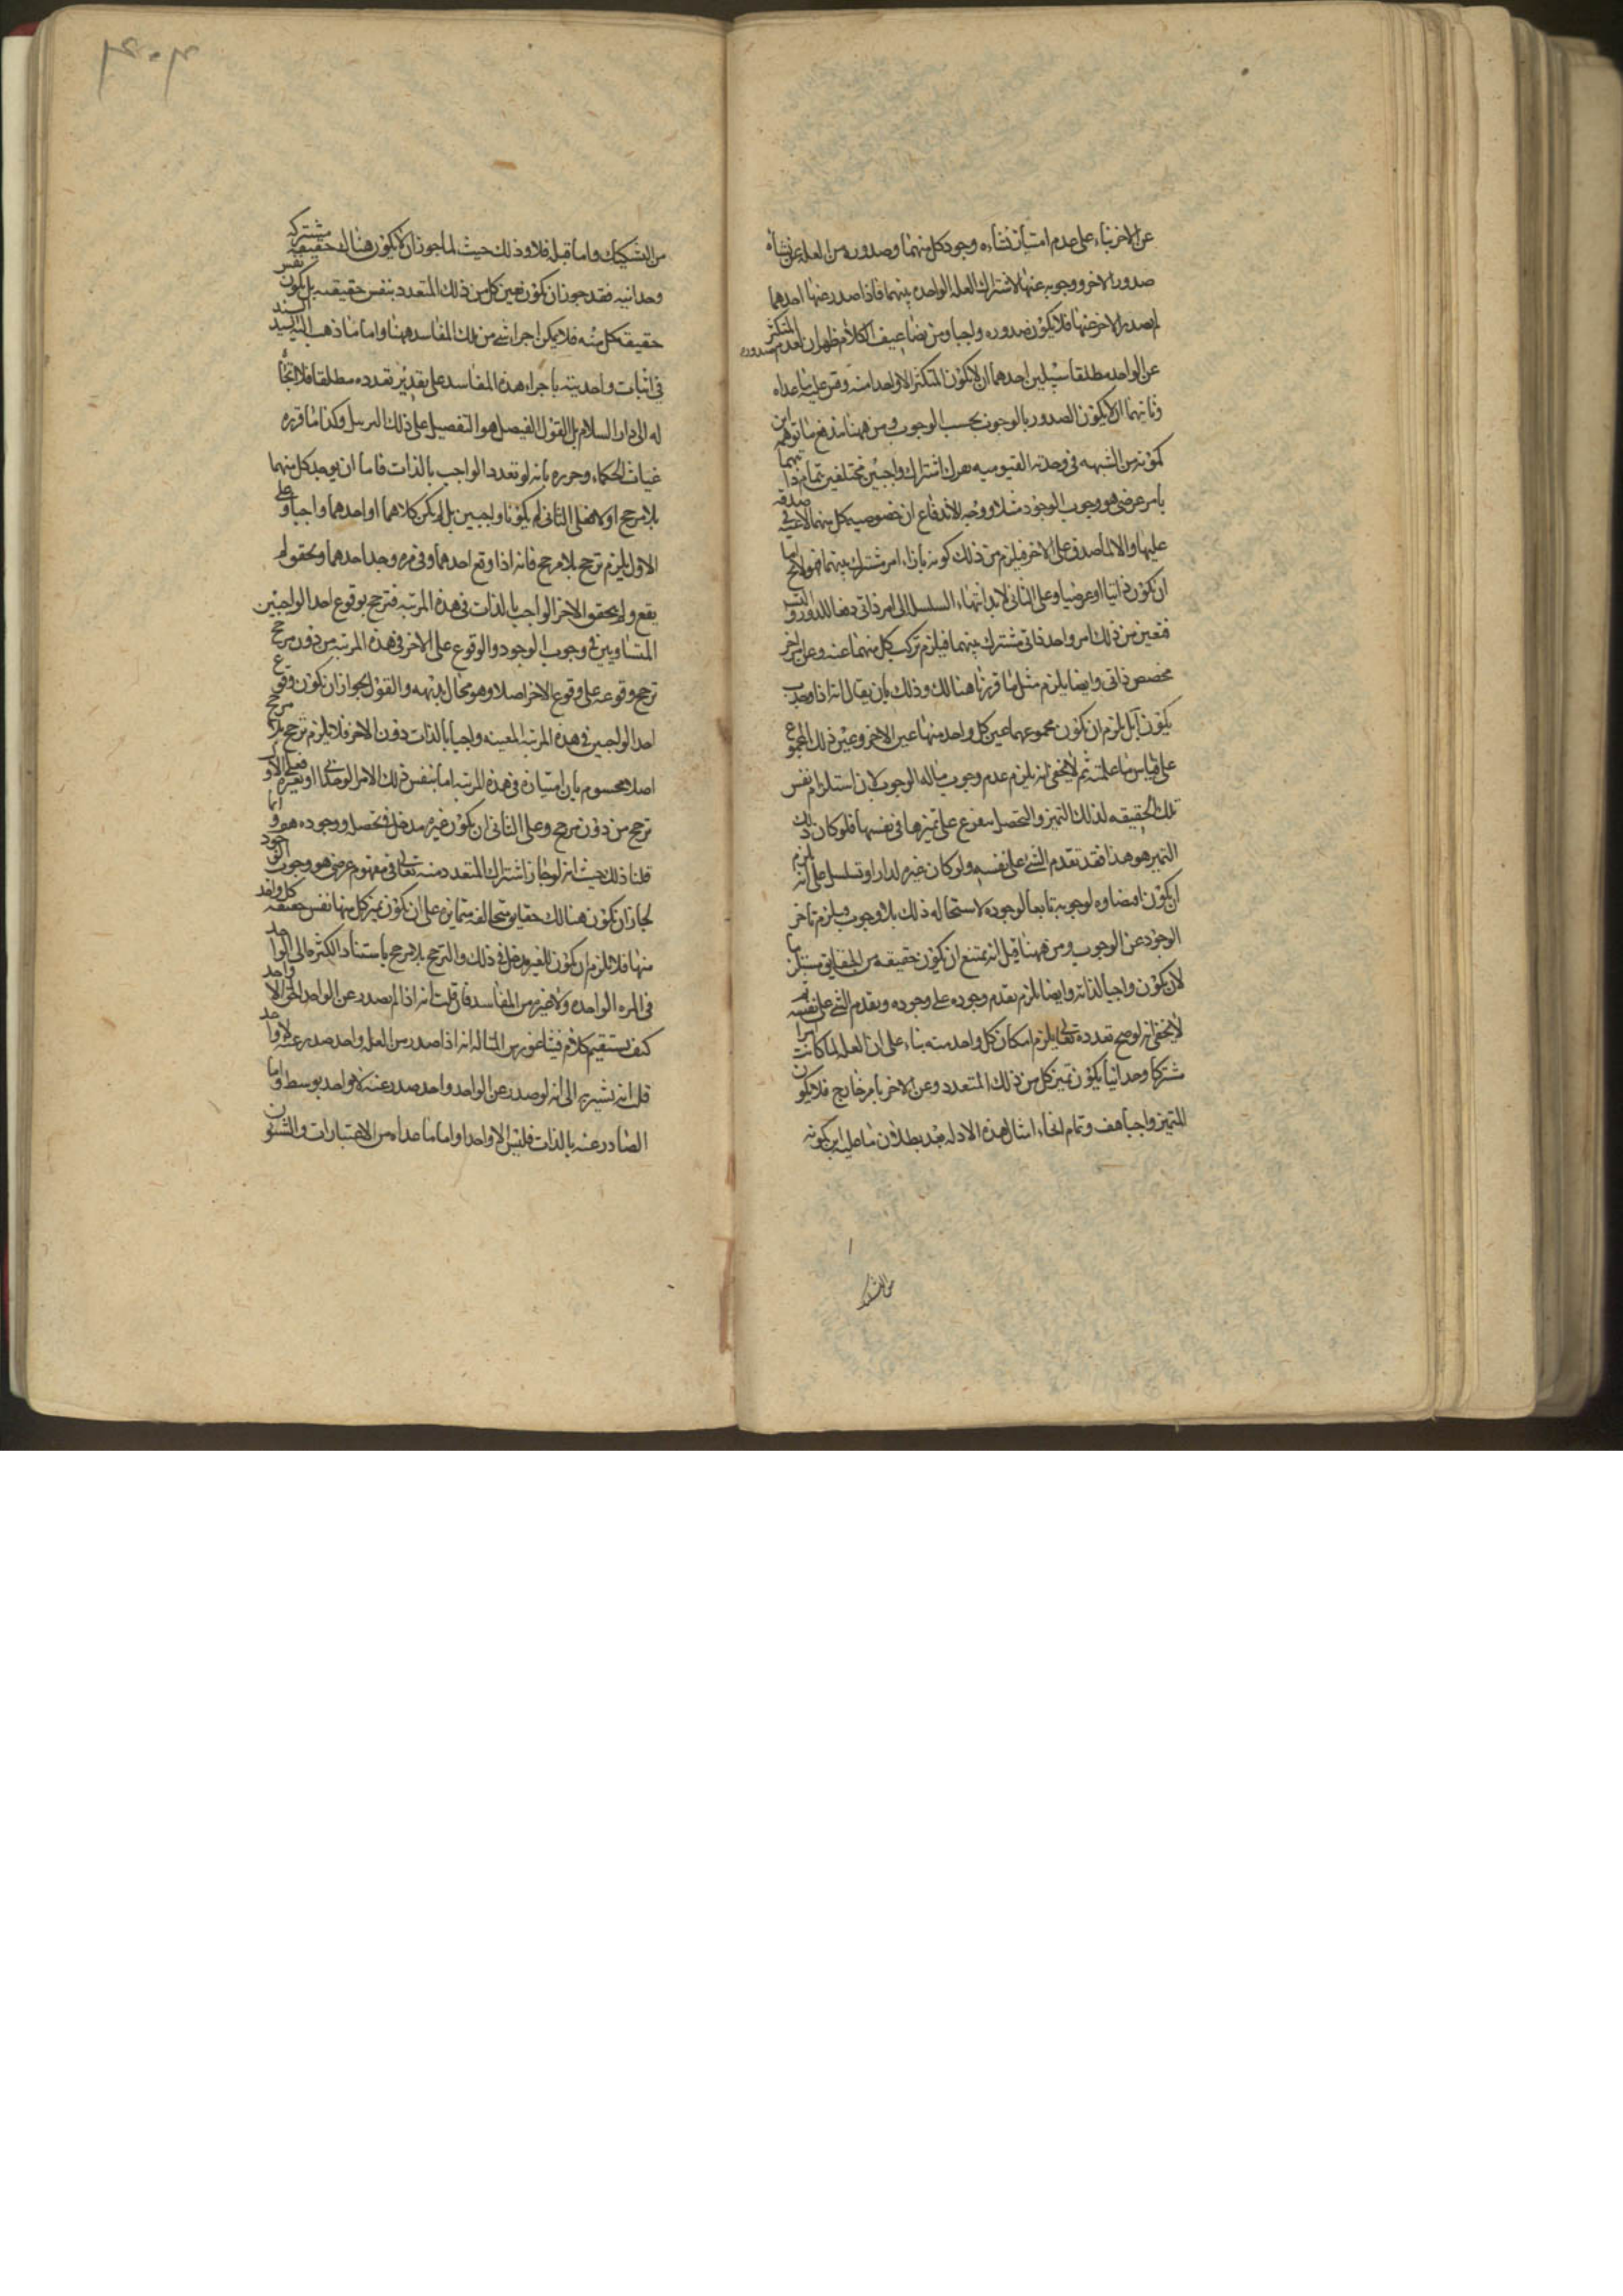 عن الاخر بناء على عدم امتياز نشاءه وجود كل منهما وصدوره من العله عن نشاه
صدور الاخر ووجوبه عنها لاشتراك العله الواحده بينهما فاذا صدر عنها احدهما
لم يصدر الاخر عنها فلا يكون صدوره واجبا ومن تضاعيف الكلام ظهر ان لعدم صدور المتكثر
عن الواحد مطلقا سبيلين احدهما ان لا يكون المتكثر الا واحدا منه وقس عليه ما عداه
وثانيهما ان لا يكون الصدور بالوجوب بحسب الوجوب ومن ههنا يندفع ما توهم ابن
كمونه من الشبهه في وحدته القيوميه من اشتراك واجبين مختلفين بتمام ذاتيهما
بامر عرضي هو وجوب الوجود مثلا ووجه الاندفاع ان خصوصيه كل منهما لاغيه في صدقه
عليها والا لما صدق على الاخر فيلزم من ذلك كونه بازاء امر مشترك بينهما فهو لا يخ اما
ان يكون ذاتيا او عرضيا وعلى الثاني لا بد انتهاء السلسله الى امر ذاتي دفعا للدور والتسلسل
فتعين من ذلك امر واحد ذاتي مشترك بينهما فيلزم تركب كل منهما عنه وعن امر اخر
مخصص ذاتي وايضا يلزم مثل ما قررنا هنالك وذلك بان يقال انه اذا وجب
يكون آبل يلزم ان يكون مجموعهما عين كل واحد منها عين الاخر وعين ذلك المجموع
على قياس ما علمته ثم لا يخفى انه يلزم عدم وجوب ماله الوجوب لان استلزام نفس
تلك الحقيقه لذلك التميز والتحصل متفرع على تميزها في نفسها فلو كان ذلك
التميز هو هذا فقد تقدم الشئ على نفسه ولو كان غيره لدار او تسلسل على انه يلزم
ان يكون اقتضاؤه لوجوبه تابعا لوجوده لاستحاله ذلك بلا وجوب ويلزم تاخر
الوجود عن الوجوب ومن ههنا قيل انه يمتنع ان يكون حقيقه من الحقايق مستلزما
لان يكون واجبا لذاته وايضا يلزم تقدم وجوده على وجوده وتقدم الشئ على نفسه ثم
لا يخفى انه لو صح تعدده تعالى يلزم امكان كل واحد منه بناء على ان العله لما كانت امرا
مشتركا وحدانيا يكون تميز كل من ذلك المتعدد وعن الاخر بامر خارج فلا يكون
المتميز واجبا هف وتمام انحاء امثال هذه الادله بعد بطلان ما عليه ابن كمونه
من التشكيك
من التشكيك واما قبله فلا وذلك حيث لما جوز ان لا يكون هنالك حقيقه مشتركه
وحدانيه فقد جوز ان يكون تعين كل من ذلك المتعدد بنفس حقيقته بل يكون نفس
حقيقه كل منه فلا يمكن اجراء شئ من تلك المفاسد ههنا واما ما ذهب اليه السيد السند
في اثبات واحديته باجراء هذه المفاسد على تقدير تعدده مطلقا فلا اتجاه
له الى دار السلام بل القول الفيصل هو التفصيل على ذلك السبيل وكذا ما قرره
غياث الحكماء وحرره بانه لو تعدد الواجب بالذات فاما ان يوجد كل منهما
بلا مرجح او لا فعلى الثاني لم يكونا واجبين بل لم يكن كلاهما او احدهما واجبا وعلى
الاول يلزم ترجح بلا مرجح فانه اذا وقع احدهما وفي مره وجد احدهما وتحقق ولم
يقع ولم يتحقق الاخر الواجب بالذات في هذه المرتبه فترجح بوقوع احد الواجبين
المتساويين في وجوب الوجود والوقوع على الاخر في هذه المرتبه من دون مرجح
ترجح وقوعه على وقوع الاخر اصلا وهو محال بديهه والقول بجواز ان يكون وقوع
احد الواجبين في هذه المرتبه المعينه واجبا بالذات دون الاخر فلا يلزم ترجح بلا مرجح
اصلا محسوم بان امتيازه في هذه المرتبه اما بنفس ذلك الامر الوحداني او بغيره فعلى الاول
ترجح من دون مرجح وعلى الثاني ان يكون غيره مدخل في تحصله ووجوده هو وانما
قلنا ذلك حيث انه لو جاز اشتراك المتعدد منه تعالى في مفهوم عرضي هو وجوب الوجود
لجاز ان يكون هنالك حقايق متخالفه متمايزه على ان يكون تميز كل منها نفس حقيقه كل واحد
منها فلا يلزم ان يكون للغير مدخل في ذلك والترجح بلا مرجح باستناد الكثره الى الواحد
في المره الواحده ولا غيره من المفاسد فان قلت انه اذا لم يصدر عن الواحد الحق الا واحد
كيف يستقيم كلام فيثاغورس المتاله انه اذا صدر من العله واحد صدر عنه لا واحد
قلت انه نشير به الى انه لو صدر عن الواحد واحد صدر عنه لا واحد بوسط واما
الصادر عنه بالذات فليس الا واحدا واما ما عداه من الاعتبارات والشئون